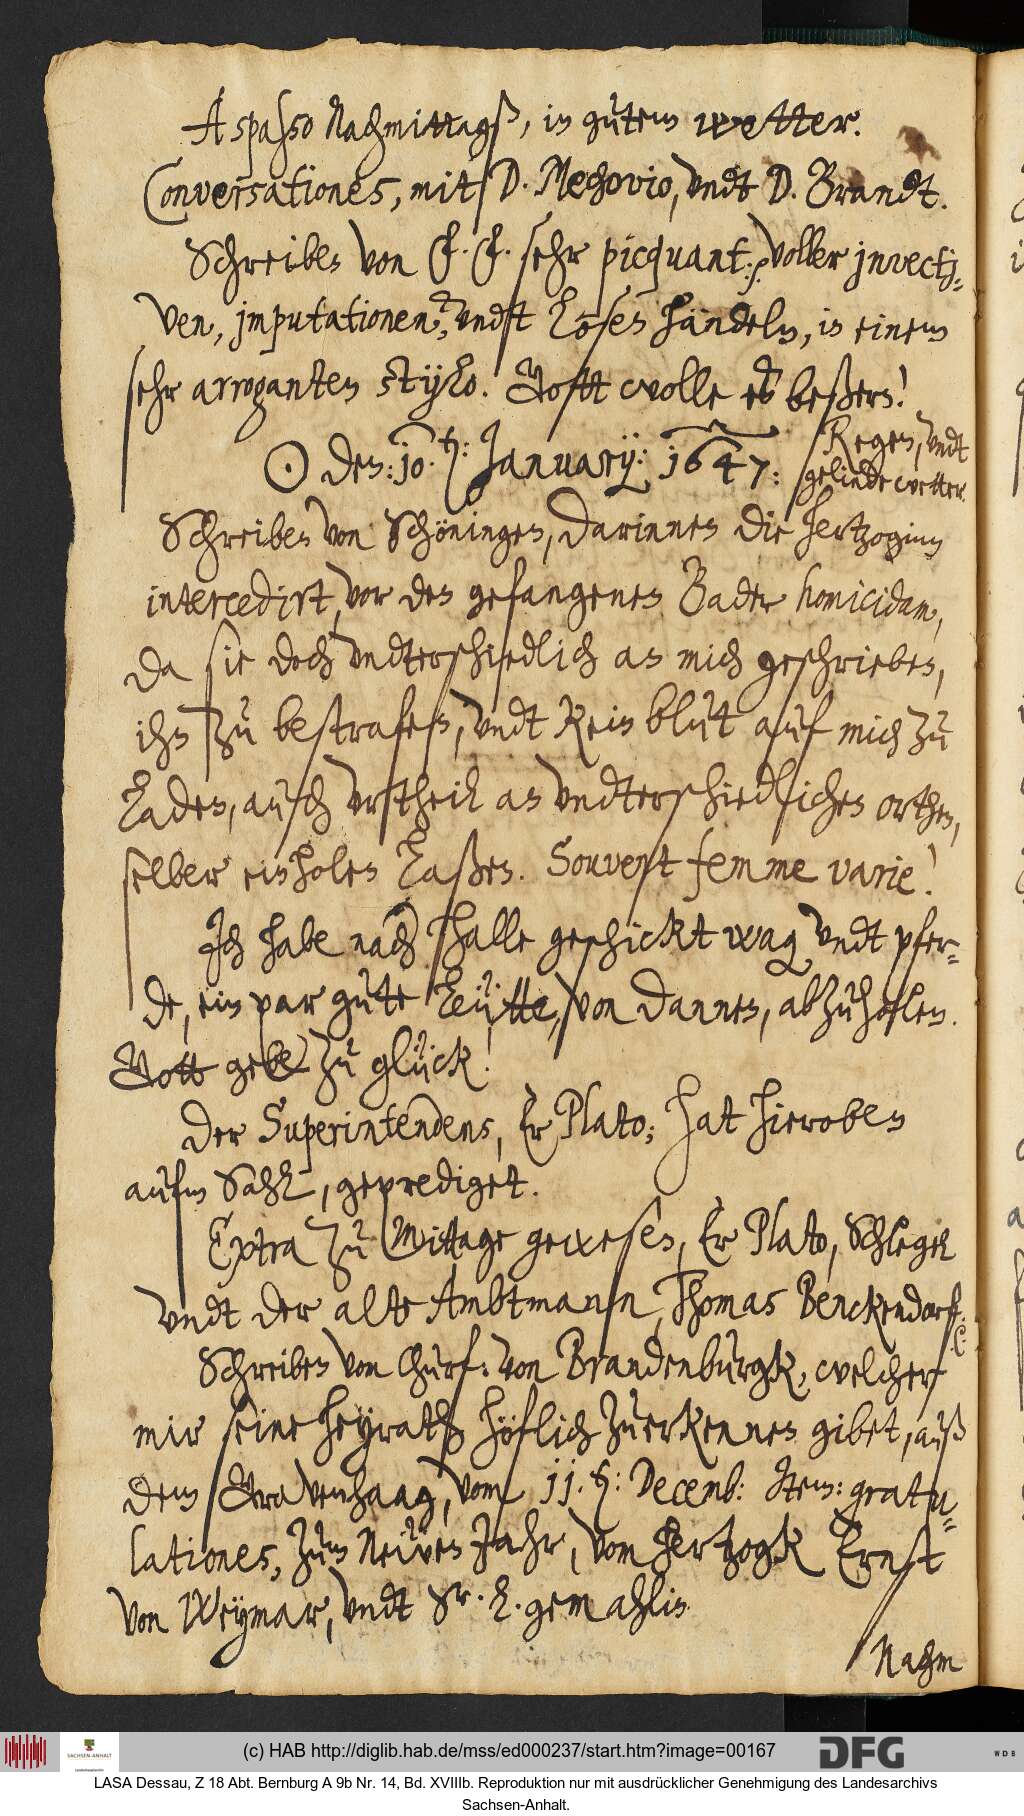 A spasso Nachmittagß, in gutem wetter.
Conversationes, mit D. Mechovio, undt D. Brandt.
Schreiben von sehr picquant: voller jnvecti-
ven, jmputationen, undt losen händeln, in einem
sehr arroganten stylo. Gott wolle es beßern!
⊙ den: 10. h: January: 1647: Regen, undt
gelinde wetter.
Schreiben von Schöningen, darinnen die Hertzoginn
intercedirt, vor den gefangenen Bader homicidam,
da sie doch undterschiedlich an mich geschrieben,
ihn zu bestrafen, undt kein blut auf mich zu
laden, auch urtheil an undterschiedlichen orthen,
selber einholen laßen. Souvent femme varie!
Ich habe nach Halle geschickt wag undt pfer-
de, ein par gute leütte, von dannen, abzuholen.
Gott gebe zu glück!
Der Superintendens, Er Plato; hat hieroben
aufm Sahl, geprediget.
Extra zu Mittage gewesen, Er Plato, Schlegel
undt der alte Ambtmann Thomas Benckendorf.
Schreiben vom Churf: von Brandenburgk, welcher
mir seine heyrath höflich zuerkennen gibet, auß
dem Gravenhaag, vom 11. h: Decemb: Item: gratu-
lationes, zum Neüen Jahr, vom Hertzogk Ernst
von Weymar, undt Sr. L. gemahlin
Nachm
(c) HAB http://diglib.hab.de/mss/ed000237/start.htm?image=00167
SACHSEN-ANHALT
DFG
WDB
LASA Dessau, Z 18 Abt. Bernburg A 9b Nr. 14, Bd. XVIIIb. Reproduktion nur mit ausdrücklicher Genehmigung des Landesarchivs
Sachsen-Anhalt.